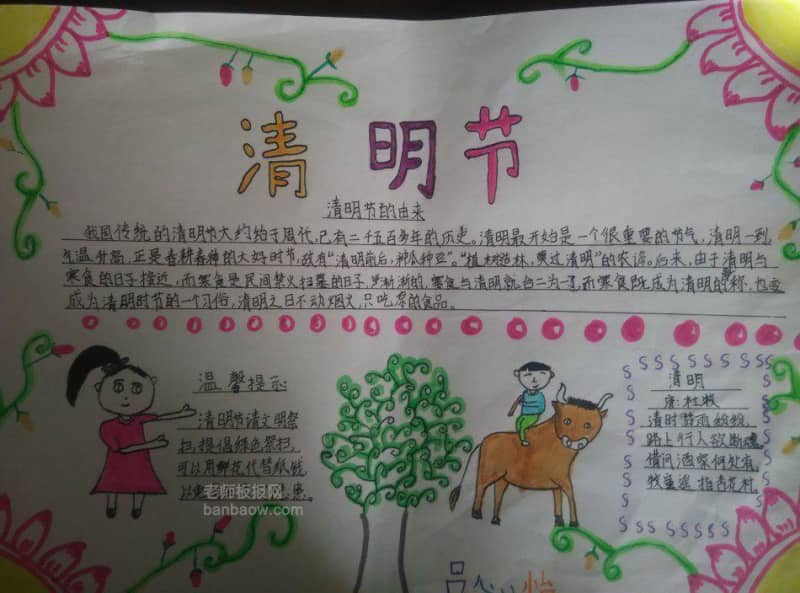 清明节
清明节的由来
我国传统的清明节大约始于周代,已有二千五百多年的历史。清明最开始是一个很重要的节气,清明一到,
气温升高,正是春耕春种的大好时节,故有"清明前后,种瓜种豆"。"植树造林,莫过清明"的农谚。后来,由于清明与
寒食的日子接近,而寒食是民间禁火扫墓的日子,渐渐的,寒食与清明就合二为一了,而寒食既成为清明的别称,也变
成为清明时节的一个习俗,清明之日不动烟火,只吃凉的食品。
温馨提示
清明节请文明祭
扫,提倡绿色祭扫,
可以用鲜花代替纸钱
以
老师板报网
banbaow.com
清明
唐:杜牧
清时节雨纷纷,
路上行人欲断魂
借问酒家何处有,
牧童遥指杏花村